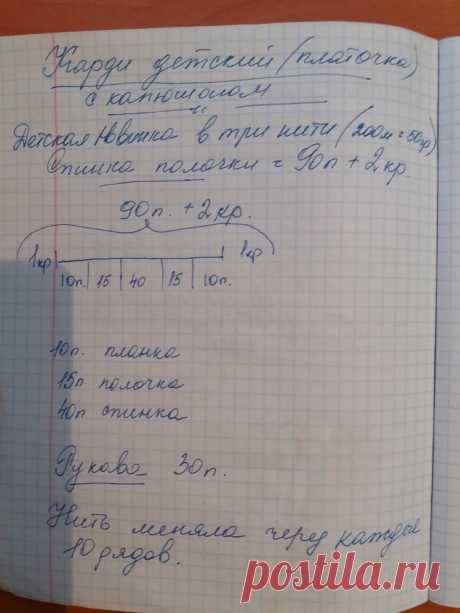 Карди детский (платочка)
с капюшоном
Детская Новинка в три нити (200м = 50гр)
Спинка полочки = 90п + 2кр.
90п. + 2кр.
1кр 1кр
10п. 15 40 15 10п.
10п. планка
15п полочка
40п спинка
Рукава 30п.
Нить меняла через каждые
10 рядов.
postila.ru